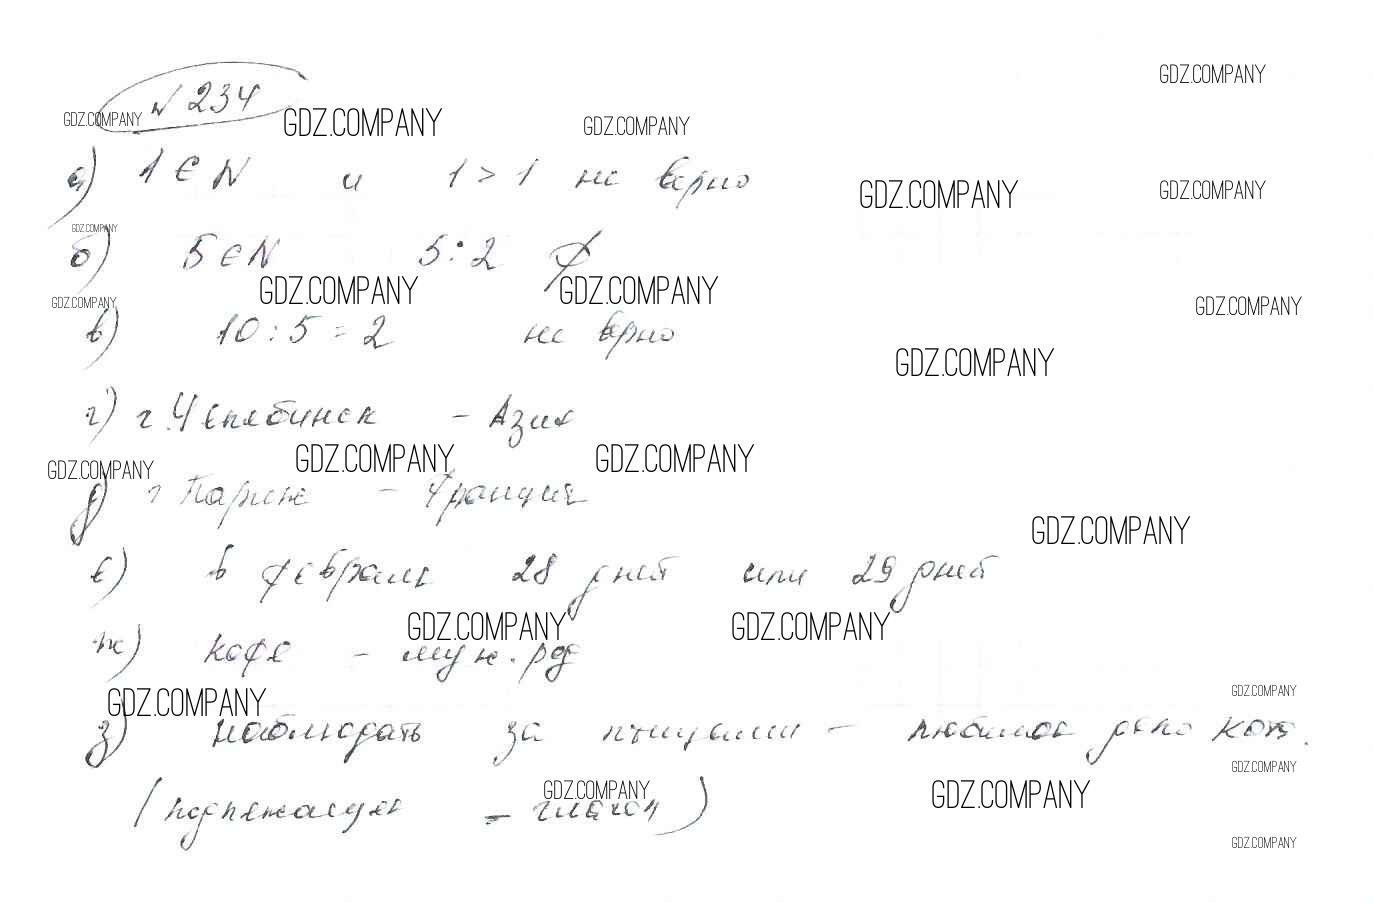 GDZ.COMPANY
№ 234
GDZ.COMPANY GDZ.COMPANY GDZ.COMPANY
а) 1 ∈ N и 1 > 1 не верно
GDZ.COMPANY GDZ.COMPANY
GDZ.COMPANY
б) 5 ∈ N 5 : 2
GDZ.COMPANY GDZ.COMPANY
GDZ.COMPANY GDZ.COMPANY
в) 10 : 5 = 2 не верно
GDZ.COMPANY
г) г. Челябинск - Азия
GDZ.COMPANY GDZ.COMPANY GDZ.COMPANY
д) г Париж - Франция
GDZ.COMPANY
е) в феврале 28 дней или 29 дней
GDZ.COMPANY GDZ.COMPANY
ж) кофе - муж. род
GDZ.COMPANY GDZ.COMPANY
з) наблюдать за птицами - любимое дело кота.
GDZ.COMPANY
GDZ.COMPANY GDZ.COMPANY
(подлежащее - глагол)
GDZ.COMPANY